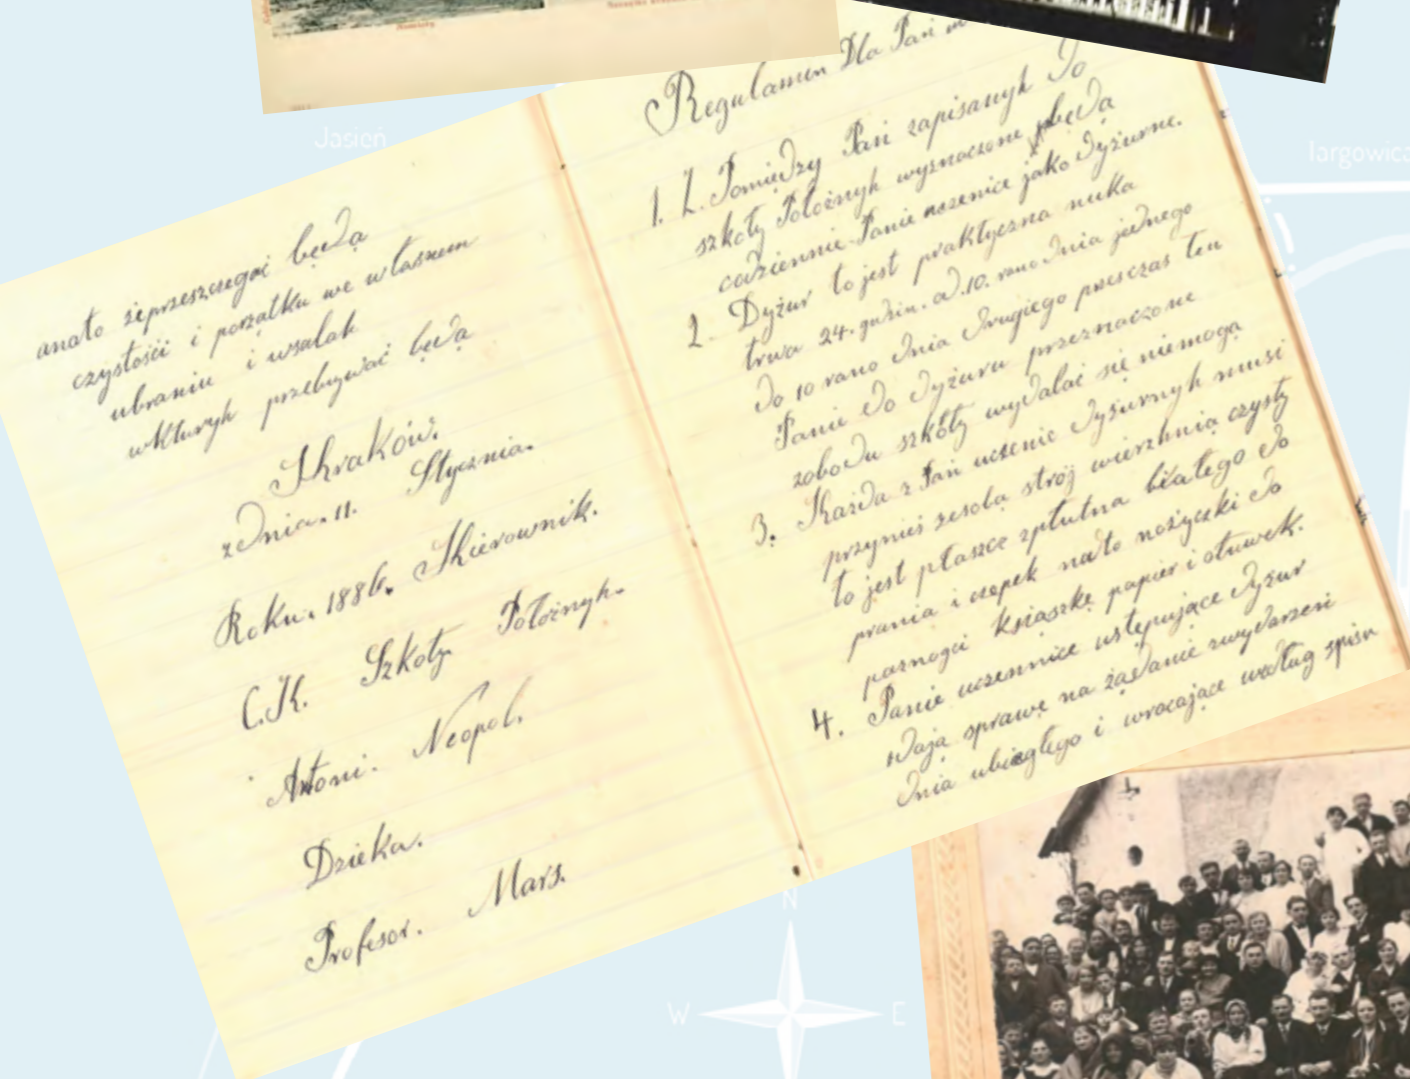 Jasień
Targowica
anato żeprzeszczegać będą
czystości i porzatku we własnem
ubraniu i wsalak
wkturyh przebywać będą
Skraków.
z Dnia. 11. Stycznia.
Roku. 1886. Skierownik.
C.K. Szkoły Położnyh.
Antoni. Neopol.
Dzieka.
Profesor. Mars.
Regulamin Dla Pań
1. Z. Pomiedzy Pań zapisanyh do
szkoły Położnyh wyznaczone będą
codziennie Panie uczenice jako dyżurne.
2. Dyżur to jest praktyczna nuka
trwa 24. godzin. od .10. rano dnia jednego
do 10 rano dnia drugiego przesczas ten
Panie do dyżuru przeznaczone
zobodu szkoły wydalać się niemogą
3. Skażda z Pań uczenic dyżurnyh musi
przynieś zesobą strój wierzhnią czysty
to jest płaszce zpłutna białego do
prania i czepek nadto nożyczki do
paznogci ksiąszkę papier i ołuwek.
4. Panie uczennice ustępujące dyżur
zdają sprawę na żądanie zwydarzeń
dnia ubiegłego i wracające według spisu
N
W
E